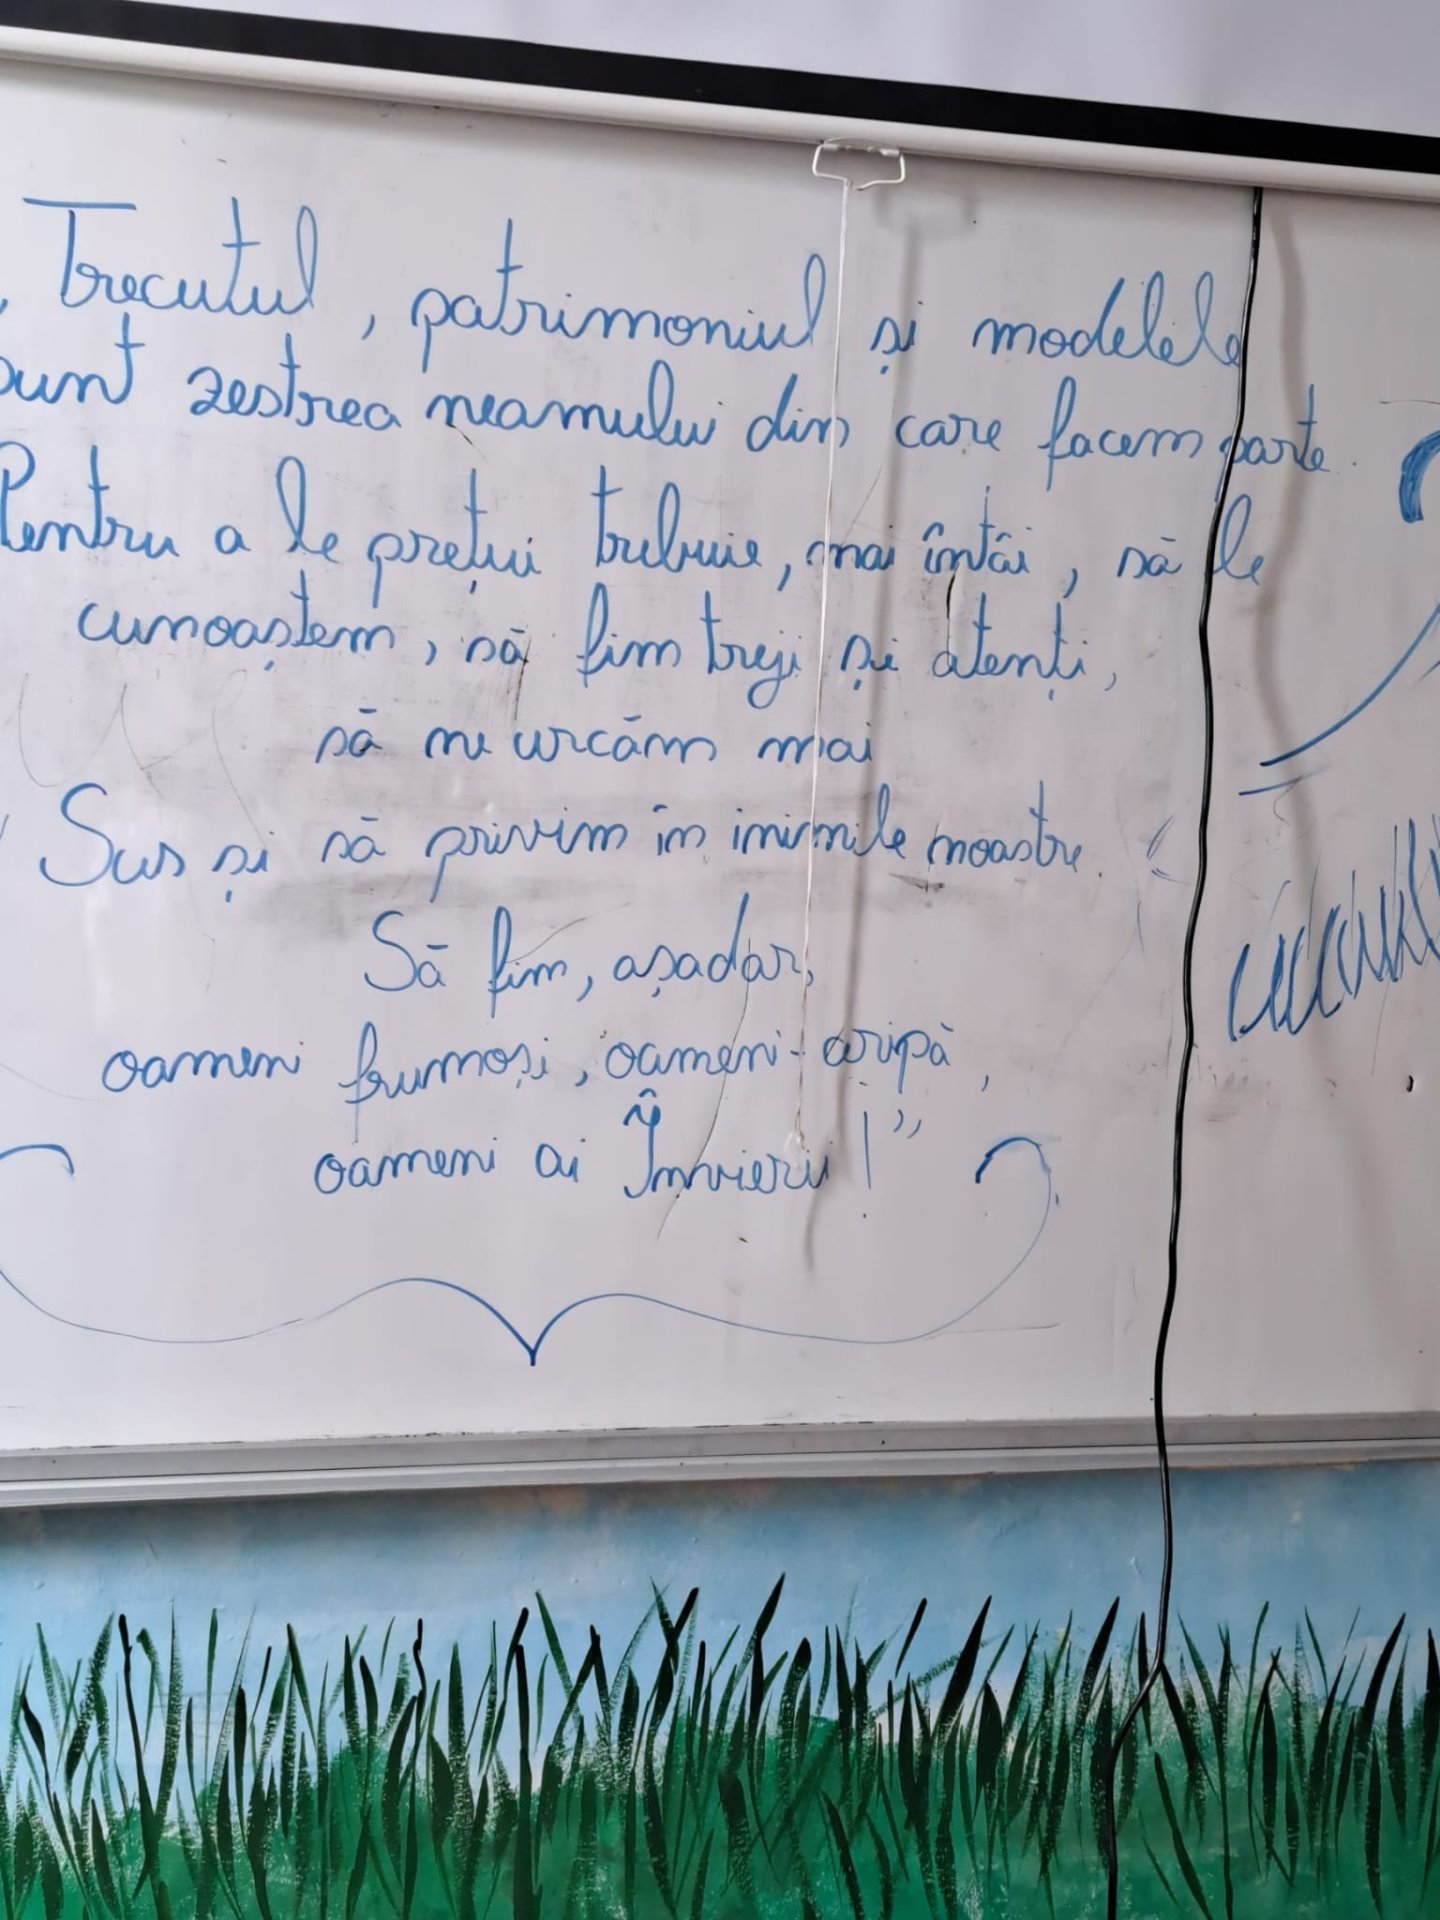 „Trecutul, patrimoniul și modelele
sunt zestrea neamului din care facem parte.
Pentru a le prețui trebuie, mai întâi, să le
cunoaștem, să fim treji și atenți,
să ne urcăm mai
Sus și să privim în inimile noastre.
Să fim, așadar,
oameni frumoși, oameni-aripă,
oameni ai Învierii!”